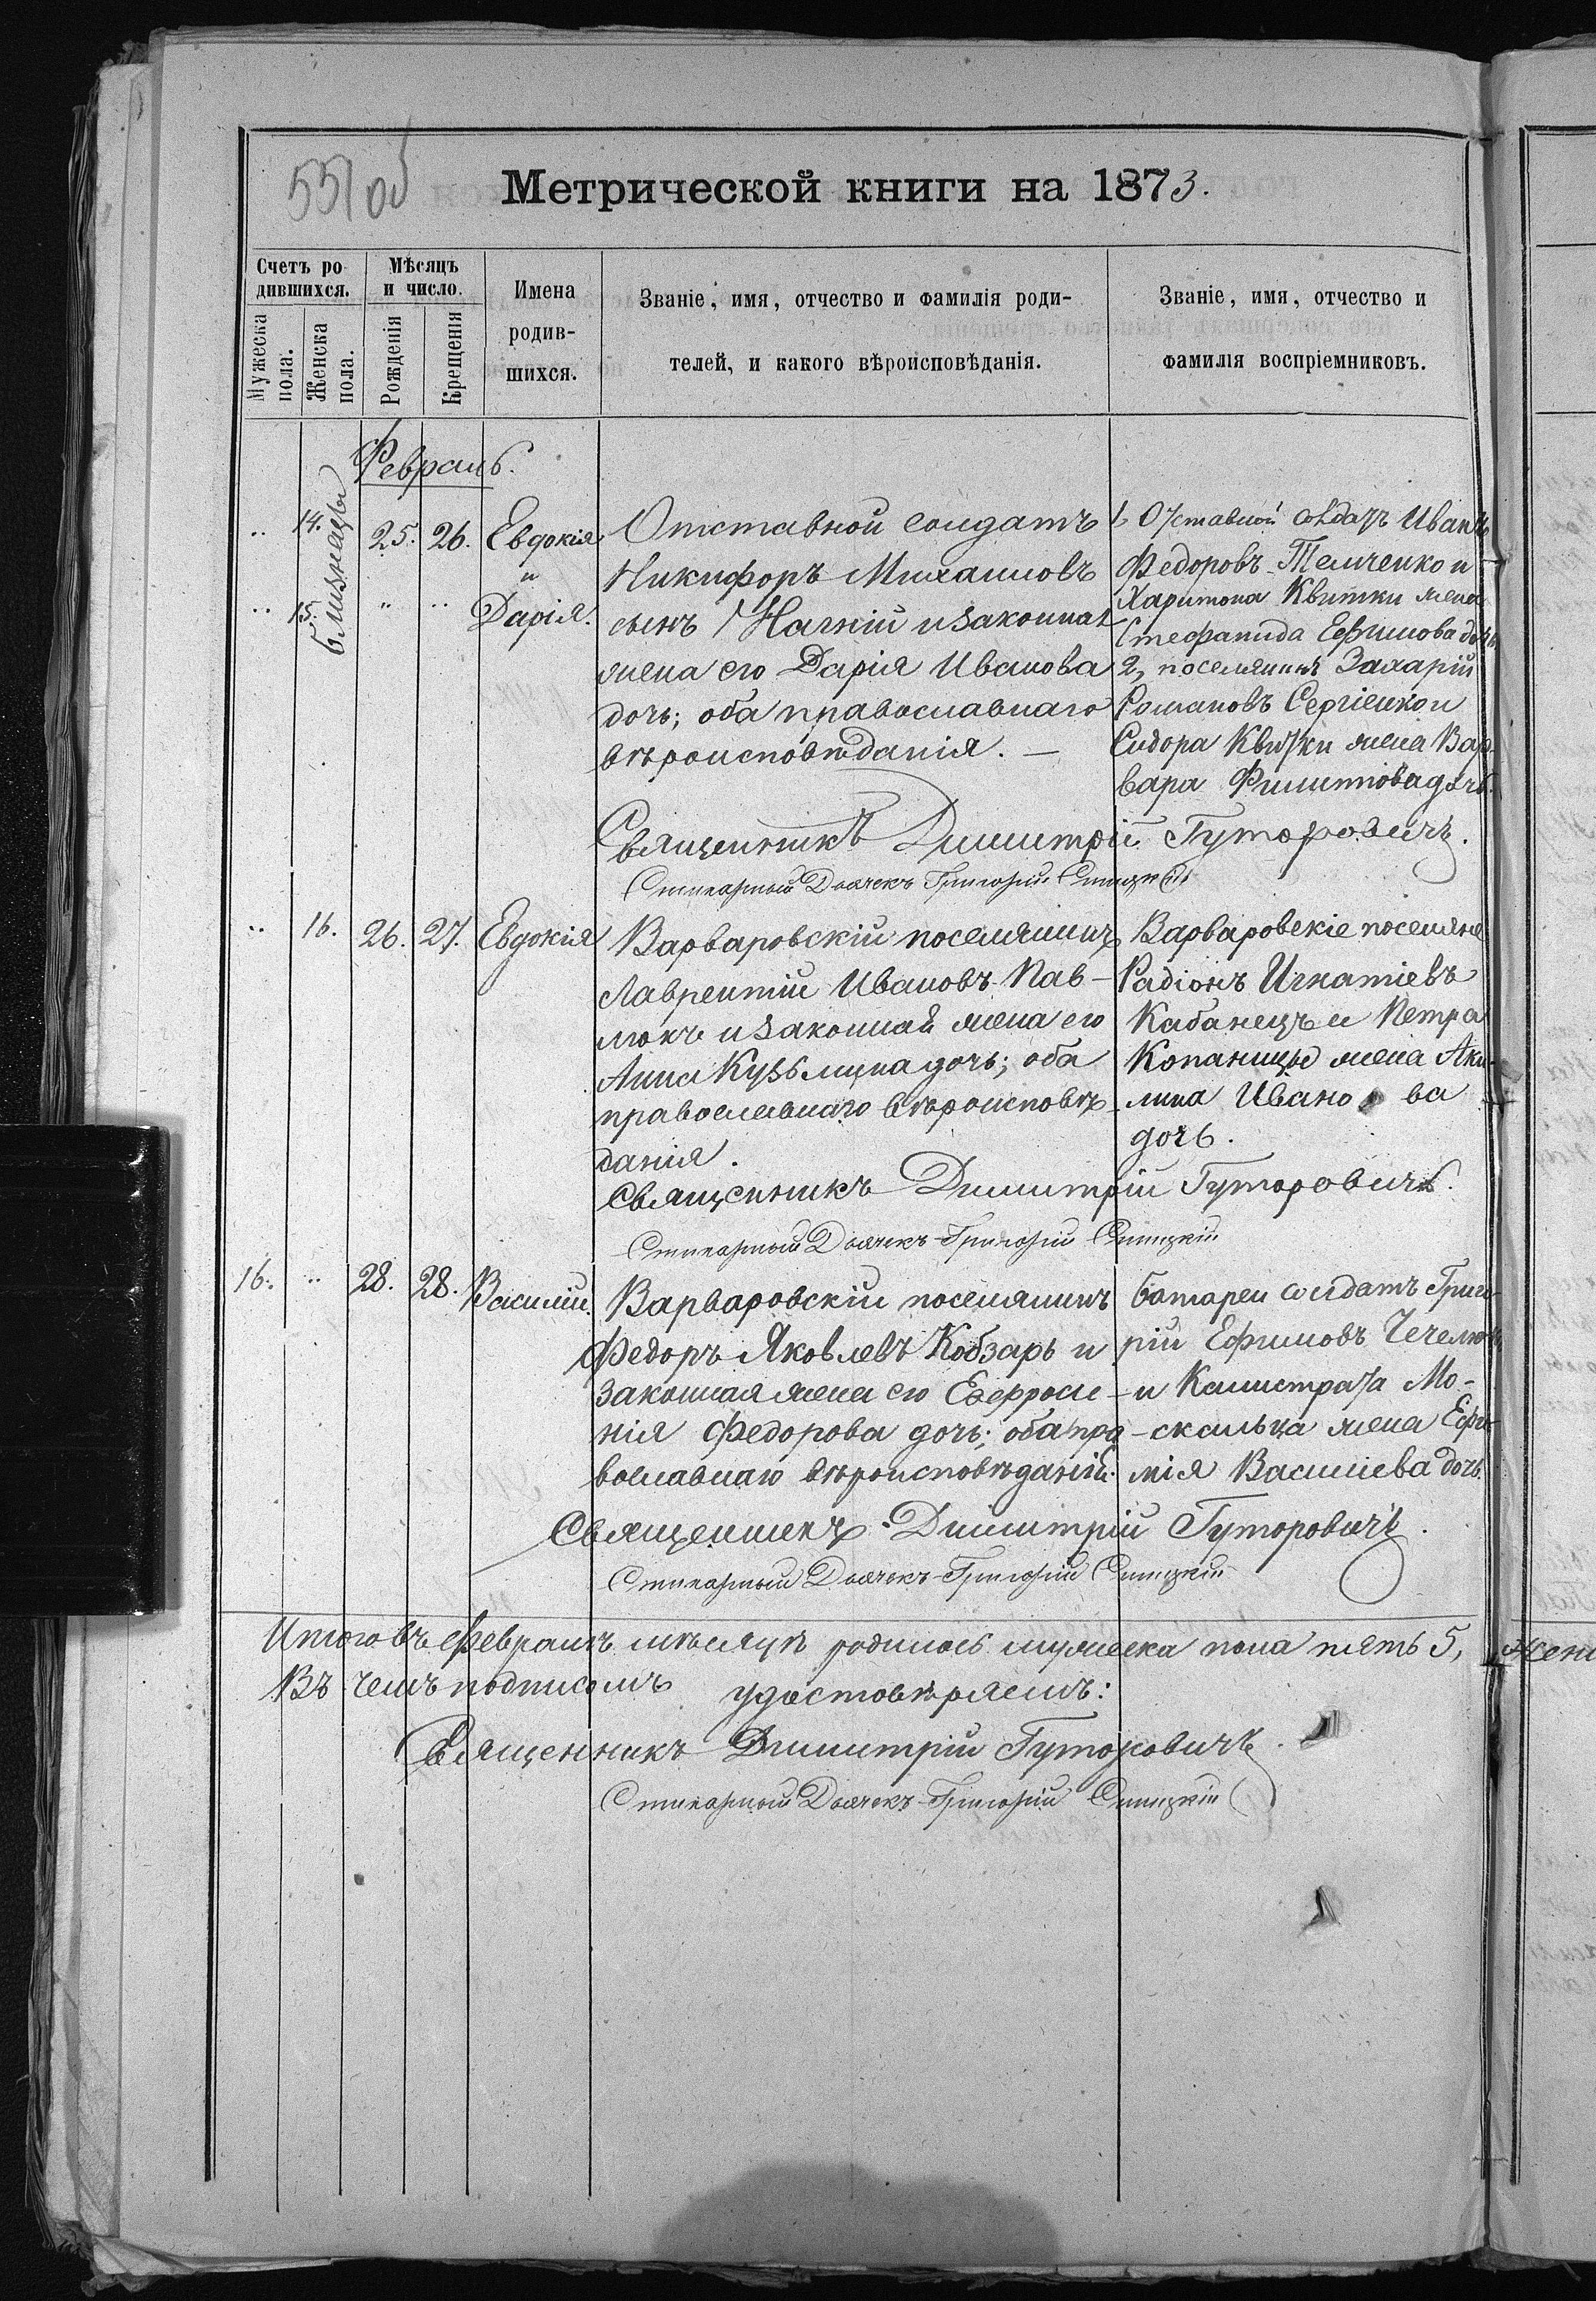 551 об
Метрической книги на 1873.
Счетъ ро
дившихся.
Мѣсяцъ
и число.
Мужеска
пола.
Женска
пола.
Рожденія
Крещенія
Имена
родив-
шихся.
Званіе, имя, отчество и фамилія роди-
телей, и какого вѣроисповѣданія.
Званіе, имя, отчество и
фамилія воспріемниковъ.
Февраль.
близнецы
14. 25. 26. Евдокія
15. Дарія.
Отставной солдатъ
Никифоръ Михаиловъ
сынъ Нагній и законная
жена его Дарія Иванова
дочь; оба православнаго
вѣроисповѣданія. —
1, Отставной солдатъ Иванъ
Федоровъ Темченко и
Харитона Квитки жена
Стефанида Ефимова дочь
2, поселянинъ Захарій
Романовъ Сергіенко и
Сидора Квитки жена Вар-
вара Филиппова дочь.
Священникъ Димитрій Гуторовичъ.
Стихарный Дьячекъ Григорій
16. 26. 27. Евдокія
Варваровскій поселянинъ
Лаврентій Ивановъ Пав-
люкъ и законная жена его
Анна Кузьмина дочь; оба
православнаго вѣроисповѣ-
данія.
Варваровскіе поселяне
Радіонъ Игнатіевъ
Кабанецъ и Петра
Копаницы жена Аки-
лина Иванова
дочь.
Священникъ Димитрій Гуторовичъ.
Стихарный Дьячекъ Григорій
16. 28. 28. Василій.
Варваровскій поселянинъ
Федоръ Яковлевъ Кобзарь и
законная жена его Евфроси-
нія Федорова дочь; оба пра-
вославнаго вѣроисповѣданія.
батареи солдатъ Григо-
рій Ефимовъ
и Калистрата Мо-
скальца жена Ефи-
мія Василіева дочь.
Священникъ Димитрій Гуторовичъ.
Стихарный Дьячекъ Григорій
Итого въ Февралѣ мѣсяцѣ родилось мужеска пола пять 5, жен
Въ чемъ подписомъ удостовѣряемъ:
Священникъ Димитрій Гуторовичъ.
Стихарный Дьячекъ Григорій